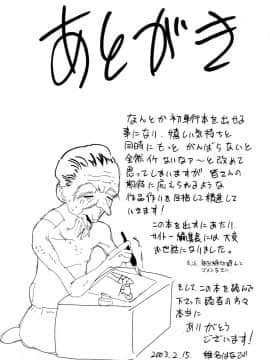 あとがき
なんとか初単行本を出せる
事になり、嬉しい気持ちと
同時にもっとがんばらないと
全然イケないなァ〜と改めて
思ってしまいますが皆さんの
期待に応えられるような
作品作りを目指して精進して
いきます!
この本を出すにあたり
サイトー編集者には大変
お世話になりました。
そしてこの本を読んで
下さった読者の方々
本当に
ありがとう
ございます!
2003.2.15